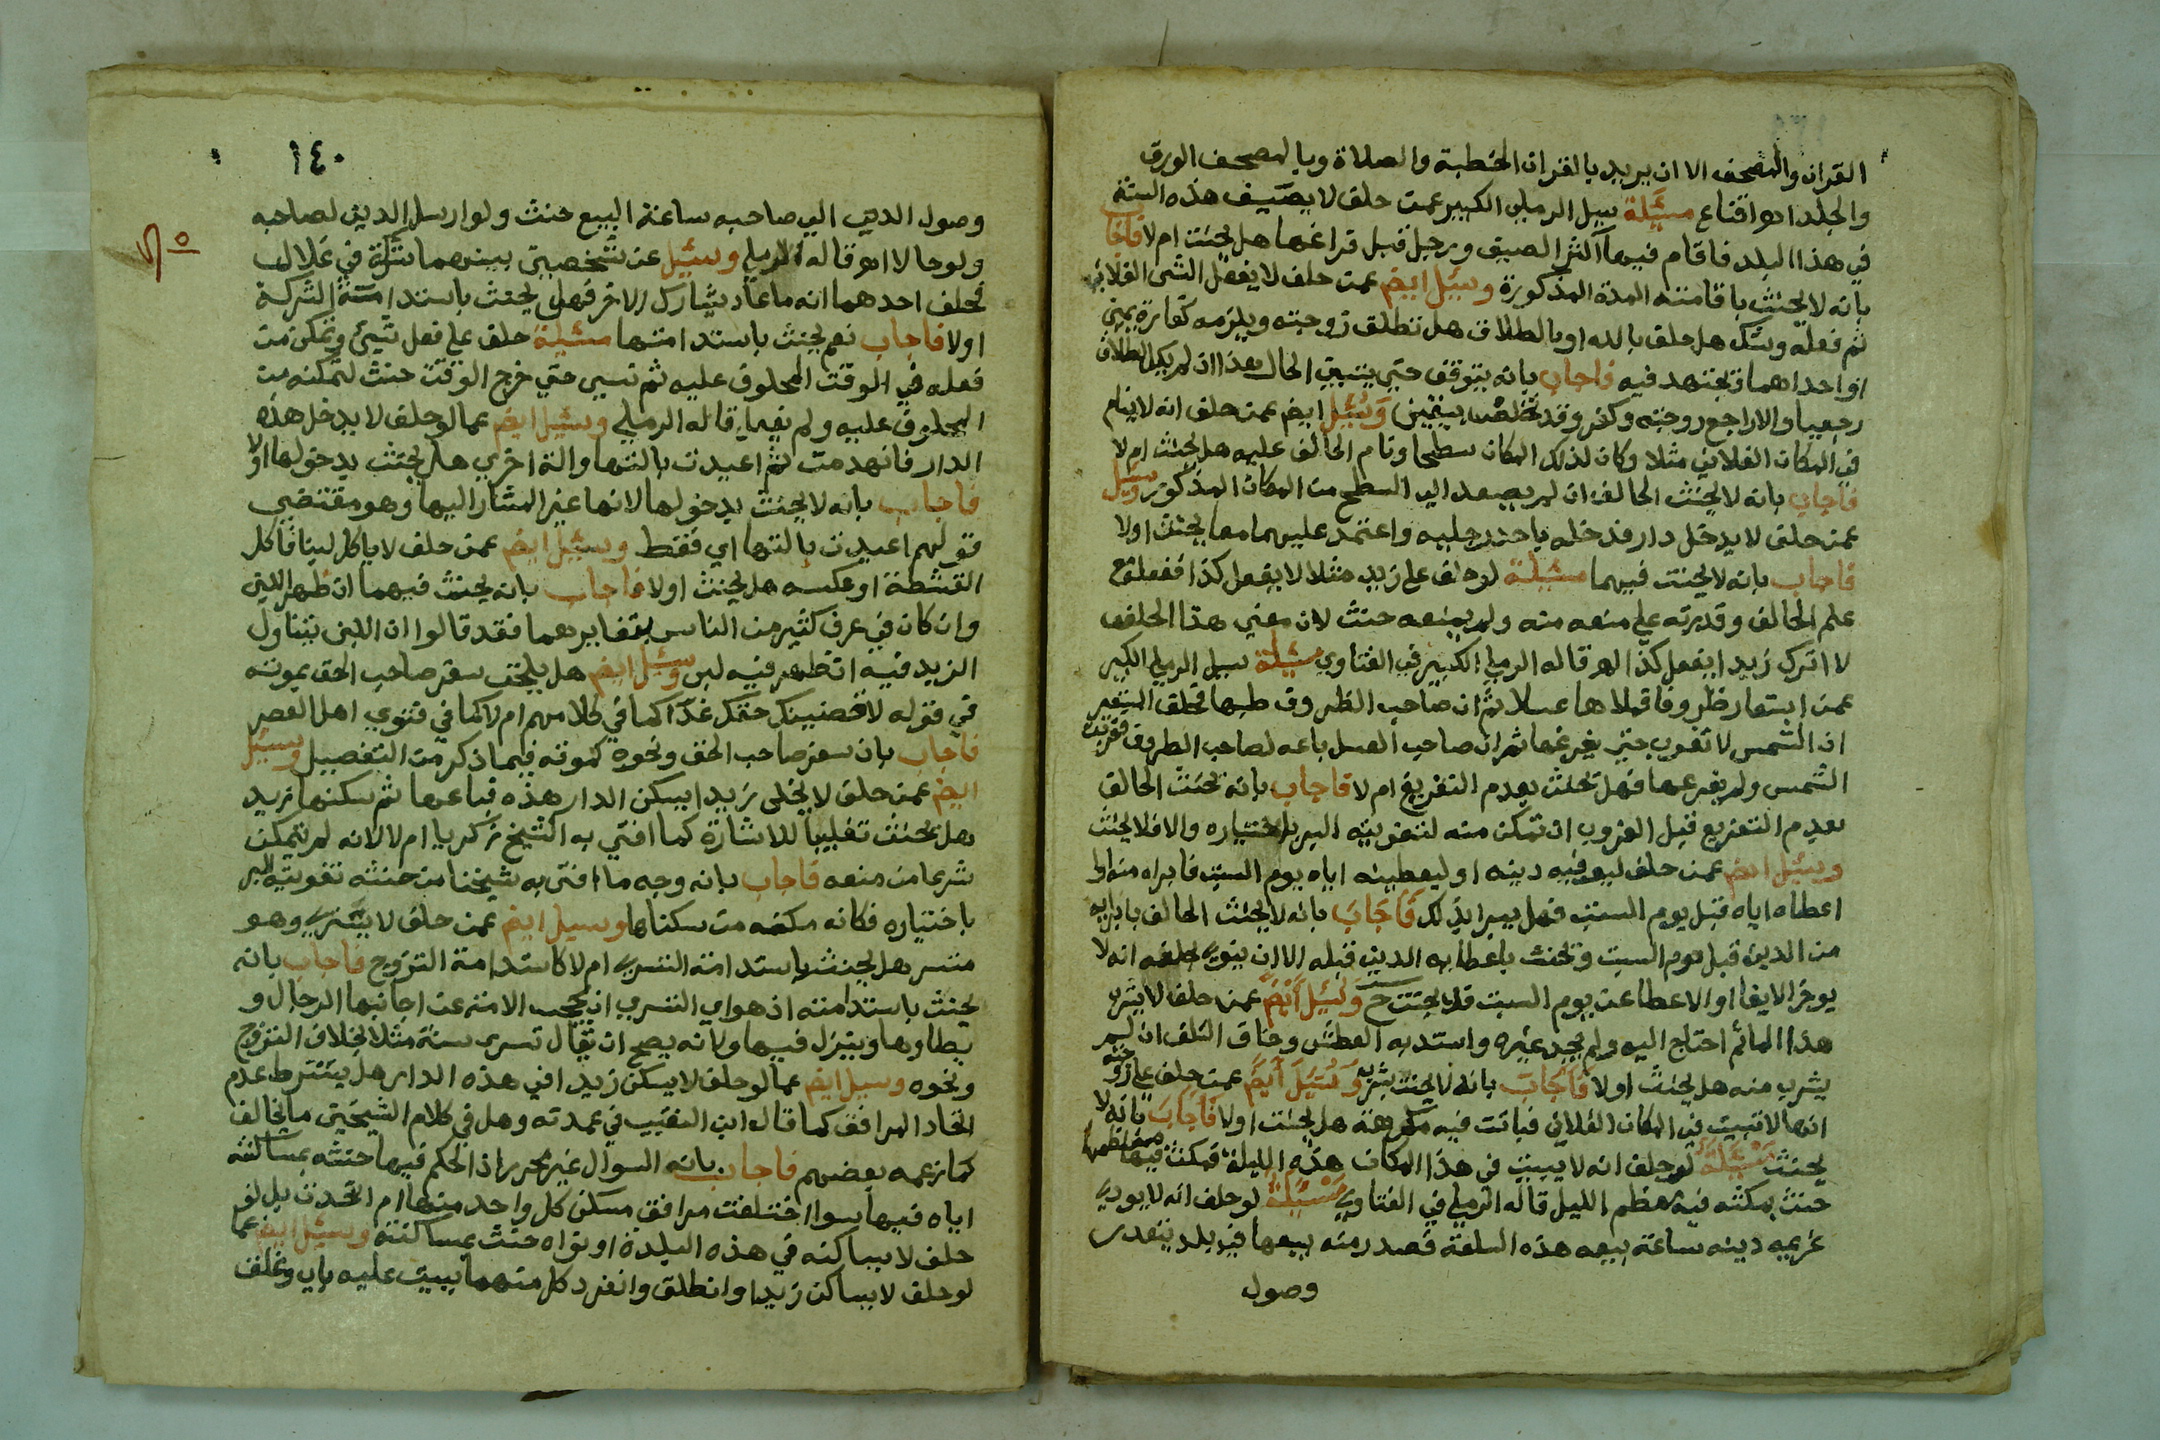 القران والمصحف الا ان يريد بالقران الخطبة والصلاة وبالمصحف الورق
والجلد اهو اقناع مسئلة سيل الرملي الكبير عمن حلف لا يصيف هذه السنة
في هذا البلد فاقام فيها اكثر الصيف ورحل قبل فراغها هل يحنث ام لا فاجا
بانه لا يحنث باقامته المدة المذكورة وسئل ايضم عمن حلف لا يفعل الشي الفلاني
ثم فعله وشك هل حلف بالله او بالطلاق هل تطلق زوجته ويلزمه كفارة يمين
او احداهما او يجتهد فيه فاجاب بانه يتوقف حتي يتبين الحال هذا ان لم يكن الطلاق
رجعيا والا راجع زوجته وكفر وقد تخلص بيقين وسئل ايضم عمن حلف انه لا ينام
في المكان الفلاني مثلا وكان لذلك المكان سطحا ونام الحالف عليه هل يحنث ام لا
فاجاب بانه لا يحنث الحالف ان لم يصعد الي السطح من المكان المذكور وسئل
عمن حلف لا يدخل دار فدخله باحد رجليه واعتمد عليهما معا يحنث اولا
فاجاب بانه لا يحنث فيهما مسئلة لو حلف علي زيد مثلا لا يفعل كذا ففعله مع
علم الحالف وقدرته علي منعه منه ولم يمنعه حنث لان معني هذا الحلف
لا اترك زيدا يفعل كذا اهو قاله الرملي الكبير في الفتاوي مسئلة سيل الرملي الكبير
عمن استعار ظروفا فملاها عسلا ثم ان صاحب الظروف طلبها فحلف المستعير
ان الشمس لا تغرب حتي يفرغها ثم ان صاحب العسل باعه لصاحب الظروف فغربت
الشمس ولم يفرغها فهل يحنث بعدم التفريغ ام لا فاجاب بانه يحنث الحالف
بعدم التفريغ قبل الغروب ان تمكن منه لتفويته البر باختياره والا فلا يحنث
وسئل ايضم عمن حلف ليوفيه دينه او ليعطينه اياه يوم السبت فابراه منه او
اعطاه اياه قبل يوم السبت فهل يبر بذلك فاجاب بانه لا يحنث الحالف بابرايه
من الدين قبل يوم السبت ويحنث باعطايه الدين قبله الا ان ينوي بحلفه انه لا
يوخر الايفا او الاعطا عن يوم السبت فلا يحنث ح وسئل ايضم عمن حلف لا يشرب
هذا الماثم احتاج اليه ولم يجد غيره واستد به العطش وخاف التلف ان لم
يشرب منه هل يحنث اولا فاجاب بانه لا يحنث بشربه وسئل ايضم عمن حلف علي زوجته
انها لا تبيت في المكان الفلاني فباتت فيه مكرهة هل يحنث اولا فاجاب بانه لا
يحنث مسئلة لو حلف انه لا يبيت في هذا المكان هذه الليلة فمكث فيها معظمها
حنث بمكثه فيه معظم الليل قاله الرملي في الفتاوي مسئلة لو حلف انه لا يودي
غريمه دينه ساعة بيعه هذه السلعة فصدر منه بيعها في بلد يتعدى
وصول
١٤٠
وصول الدين الي صاحبه ساعة البيع حنث ولو ارسل الدين لصاحبه
ولو حالا اهو قاله الرملي وسئيل عن شخصين بينهما شركة في غلال
فحلف احدهما انه ما عاد يشارك الاخر فهل يحنث باستدامة الشركة
اولا فاجاب نعم يحنث باستدامتها مسئلة حلف علي فعل شيئ وتمكن من
فعله في الوقت المحلوف عليه ثم نسي حتي خرج الوقت حنث لتمكنه من
المحلوف عليه ولم يفعله قاله الرملي وسئيل ايضم عما لو حلف لا يدخل هذه
الدار فانهدمت ثم اعيدت بالتها والة اخري هل يحنث بدخولها اولا
فاجاب بانه لا يحنث بدخولها لانها غير المشار اليها وهو مقتضي
قولهم اعيدت بالتها اي فقط وسئيل ايضم عمن حلف لا ياكل لبنا فاكل
القشطة او عكسه هل يحنث اولا فاجاب بانه يحنث فيهما ان ظهر اللبن
وان كان في عرف كثير من الناس بتغايرهما فقد قالوا ان اللبن يتناول
الزبد فيه ان ظهر فيه لبن وسئيل ايضم هل يلحق سفر صاحب الحق بموته
في قوله لاقضينك حقك غدا كما في كلامهم ام لا كما في فتوي اهل العصر
فاجاب بان سفر صاحب الحق ونحوه كموته فيما ذكر من التفصيل وسئيل
ايضم عمن حلف لا يخلي زيدا يسكن الدار هذه فباعها ثم سكنها زيد
هل يحنث تغليبا للاشارة كما افتي به الشيخ زكريا ام لا لانه لم يتمكن
شرعا من منعه فاجاب بانه وجه ما افتي به شيخنا من حنثه تفويته البر
باختياره فكانه مكنه من سكناها وسيل ايضم عمن حلف لا يتسري وهو
متسر هل يحنث باستدامة التسري ام لا كاستدامة التزوج فاجاب بانه
يحنث باستدامته اذ هو اي التسري ان يحجب الامة عن اجانبها الرجال و
يطاوها وينزل فيها ولانه يصح ان يقال تسرى سنة مثلا بخلاف التزوج
ونحوه وسيل ايضم عما لو حلف لا يسكن زيدا في هذه الدار هل يشترط عدم
اتحاد المرافق كما قال ابن النقيب في عمدته وهل في كلام الشيخين ما يخالف
كما زعمه بعضهم فاجاب بانه السوال غير محرر اذ الحكم فيها حنثه بمساكنته
اياه فيها سوا اختلفت مرافق مسكن كل واحد منها ام اتحدت بل لو
حلف لا يساكنه في هذه البلدة او نواه حنث بمساكنته وسئيل ايضم عما
لو حلف لا يساكن زيدا وانطلق وانفرد كل منهما ببيت عليه باب وغلف